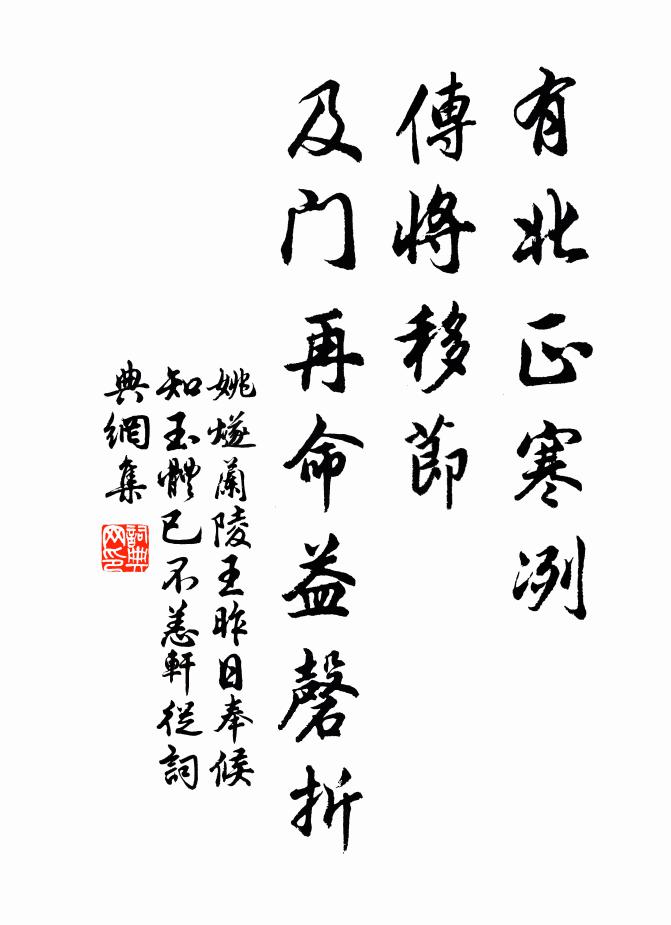 有北正寒冽
傳將移節
及门再命益磬折
姚燧蘭陵王昨日奉候
知玉體已不恙軒從詞
典網集
詞典
网印